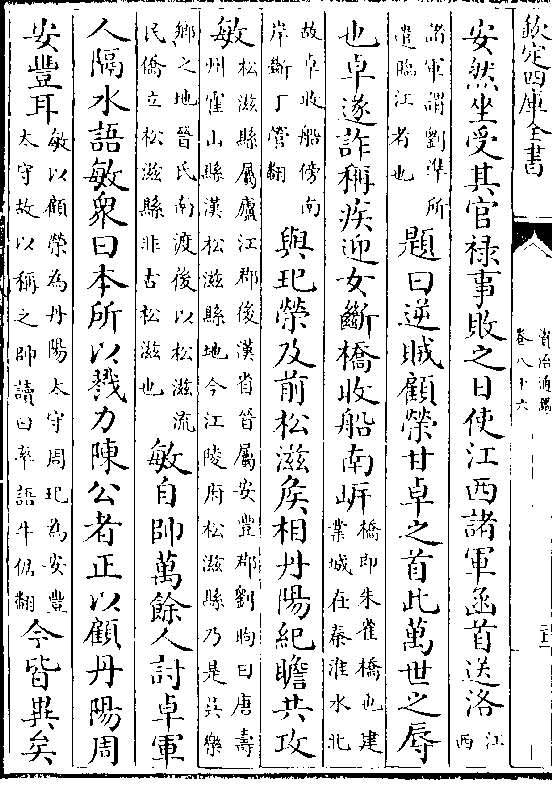 欽定四庫全書
資治通鑑
卷八十六
安然坐受其官祿事敗之日使江西諸軍函首送洛江西
諸軍謂劉準所遣臨江者也題曰逆賊顧榮甘卓之首此萬世之辱
也卓遂詐稱疾迎女斷橋收船南岍橋即朱雀橋也建業城在秦淮水北
故卓收船傍南岸斷丁管翻與玘榮及前松滋侯相丹陽紀瞻共攻
敏松滋縣屬廬江郡後漢省晉屬安豐郡劉昫曰唐壽州霍山縣漢松滋縣地今江陵府松滋縣乃是吳樂
鄉之地晉氏南渡後以松滋流民僑立松滋縣非古松滋也敏自帥萬餘人討卓軍
人隔水語敏衆曰本所以戮力陳公者正以顧丹陽周
安豐耳敏以顧榮為丹陽太守周玘為安豐太守故以稱之帥讀曰率語牛倨翻今皆異矣